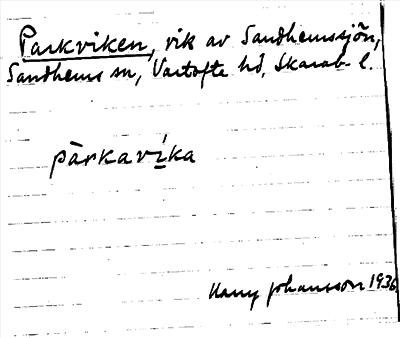 Parkviken, vik av Sandhemssjön,
Sandhems sn, Vartofte hd, Skarab. l.
pàrkavíka
Harry Johansson 1936